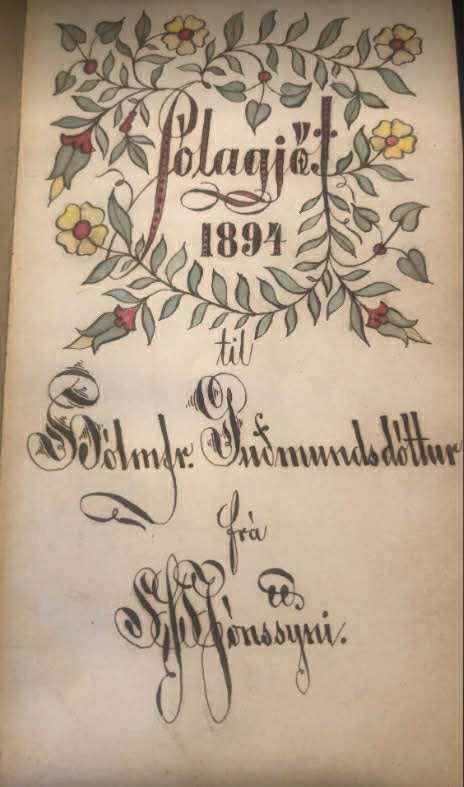 Jólagjöf
1894
til
Hólmfr. Guðmundsdóttur
frá
Jónssyni.